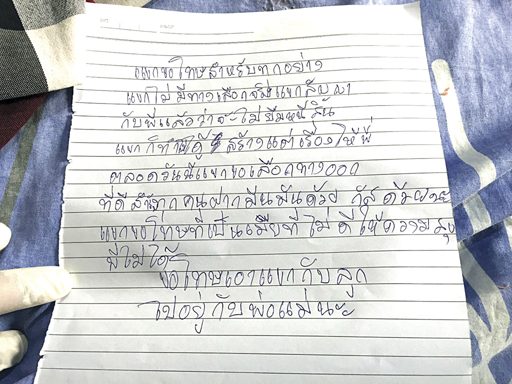 แขกขอโทษสำหรับทุกอย่าง
แขกไม่มีทางเลือกจริงแขกสัญญา
กับพี่แล้วว่าจะไม่ยืมหนี้สิน
แขกก็ทำ สร้างแต่เรื่องให้พี่
ตลอดวันนี้แขกขอเลือกทางออก
ที่ดีสำ ทุกคนฝาก ด้วย
แขกขอโทษที่เป็นเมียที่ไม่ดีให้ความสุข
พี่ไม่ได้
ขอโทษเอาแขกกับลูก
ไปอยู่กับพ่อแม่นะ